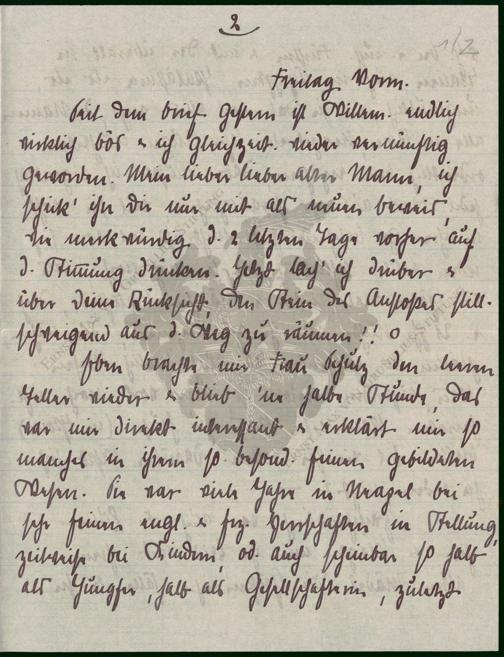 2
1/2
Freitag Vorm.
Seit dem brief gestern ist Willem. endlich
wirklich bös & ich gleichzeit. wieder vernünftig
geworden. Mein lieber lieber alter Mann, ich
schick' ihn dir nur mit als neuen beweis,
wie merkwürdig d. 2 letzten Tage vorher auf
d. Stimmung drücken. Jetzt lach' ich drüber &
über deine Rücksicht, den Stein des Anstoßes still-
schweigend aus d. Weg zu räumen!!
Eben brachte mir Frau Schulz den leeren
Teller wieder & blieb 'ne halbe Stunde, das
war mir direkt interessant & erklärt mir so
manches in ihrem so besond. feinen gebildeten
Wesen. Sie war viele Jahre in Neapel bei
sehr feinen engl. & frz. Herrschaften in Stellung,
zeitweise bei Kindern, od. auch scheinbar so halb
als Jungfer, halb als Gesellschafterin, zuletzt